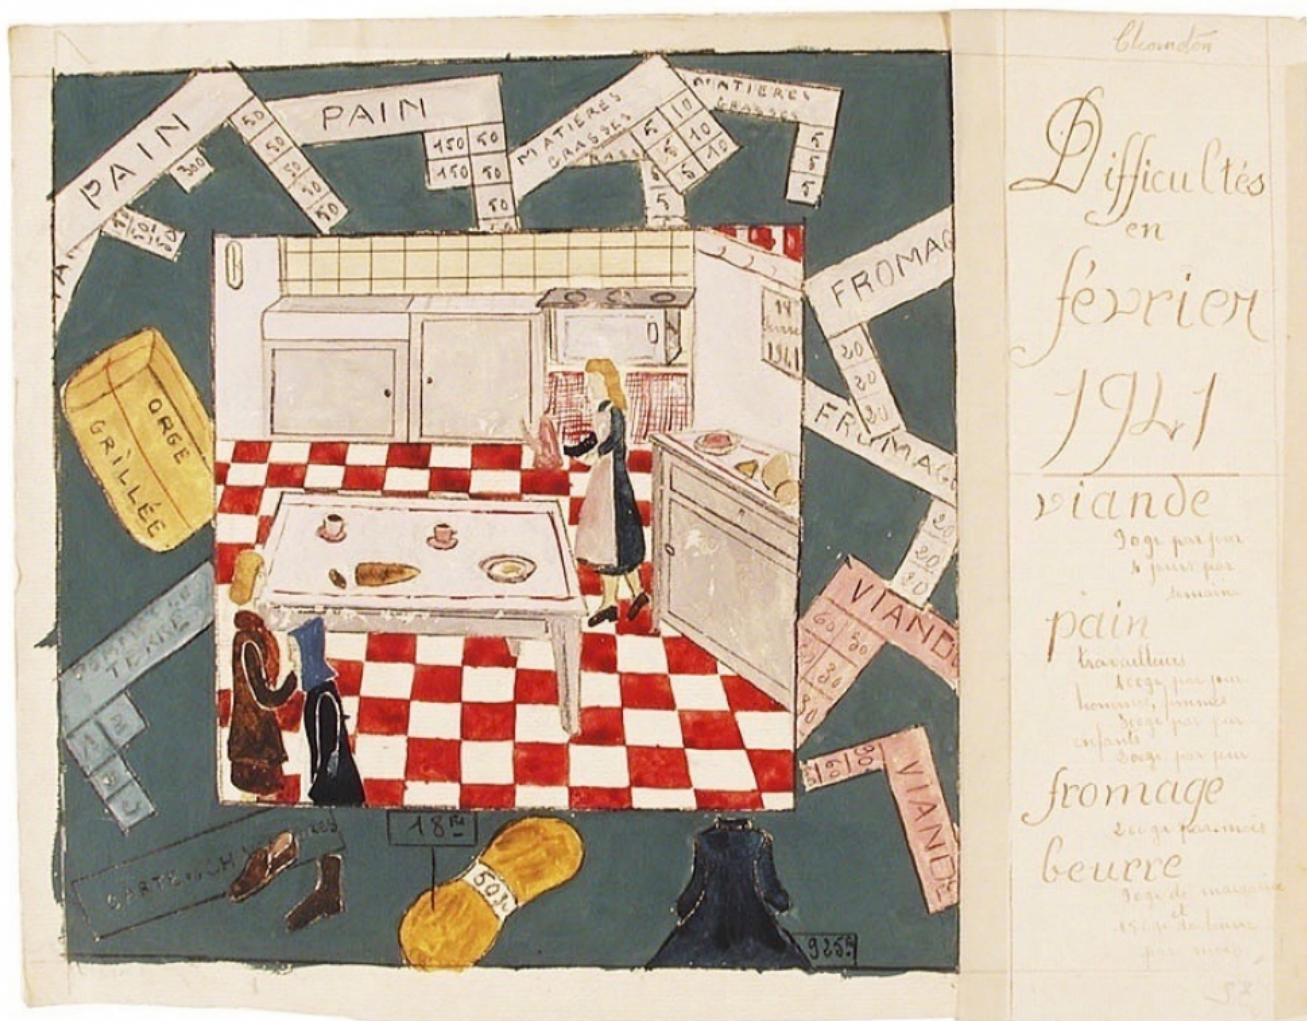 PAIN
300
50
50
50
50
50
PAIN
150 50
150 50
50
MATIERES
GRASSES
5 10
10
5 10
5
5
MATIERES
GRASSES
5
5
5
FROMAG
20
20
20
FROMAGE
20
20
20
ORGE
GRÎLLÉE
1941
VIANDE
60 30
30
30
30
60
VIANDE
TERRE
CARTE
18 Frs
50gr
925f
Difficultés
en
février
1941
viande
90gr par jour
jours par
semaine
pain
travailleurs
par jour
hommes, femmes
300gr par jour
enfants
par jour
fromage
200gr par mois
beurre
de margarine
et
de beurre
par mois